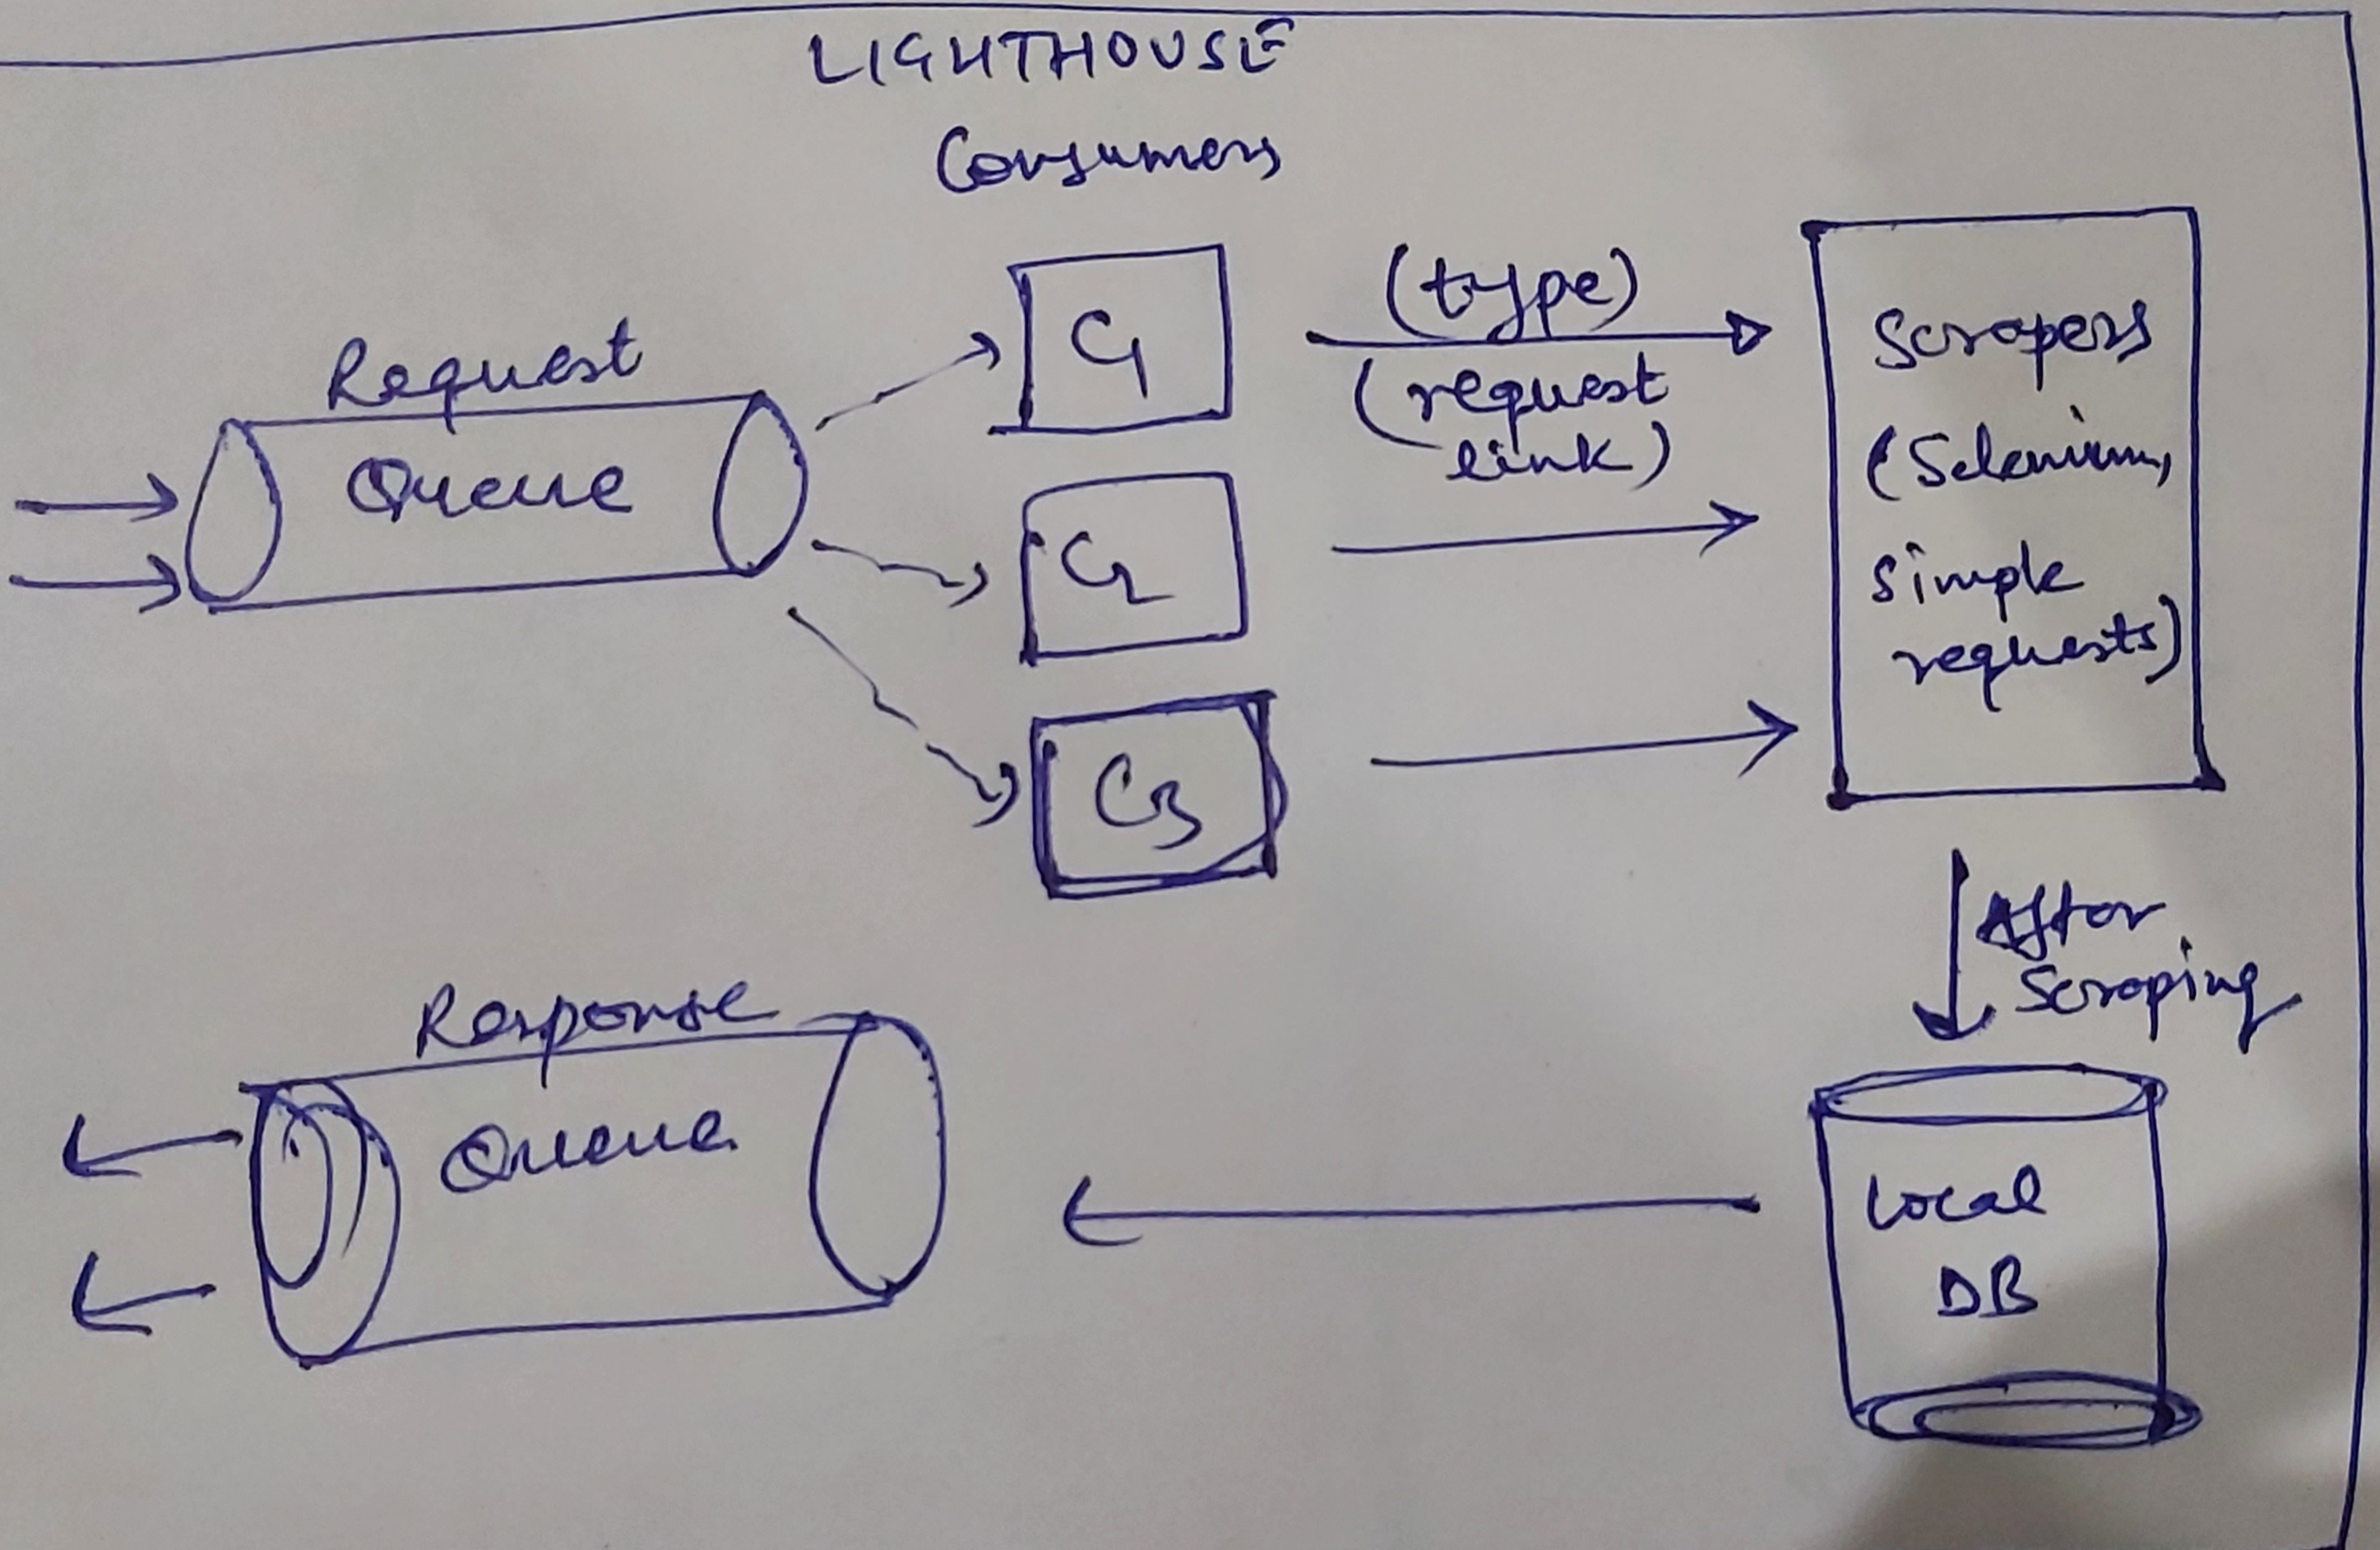 LIGHTHOUSE
Consumers
Request
Queue
C1
C2
C3
(type)
(request
link)
Scrapers
(Selenium,
simple
requests)
After
Scraping
Local
DB
Response
Queue